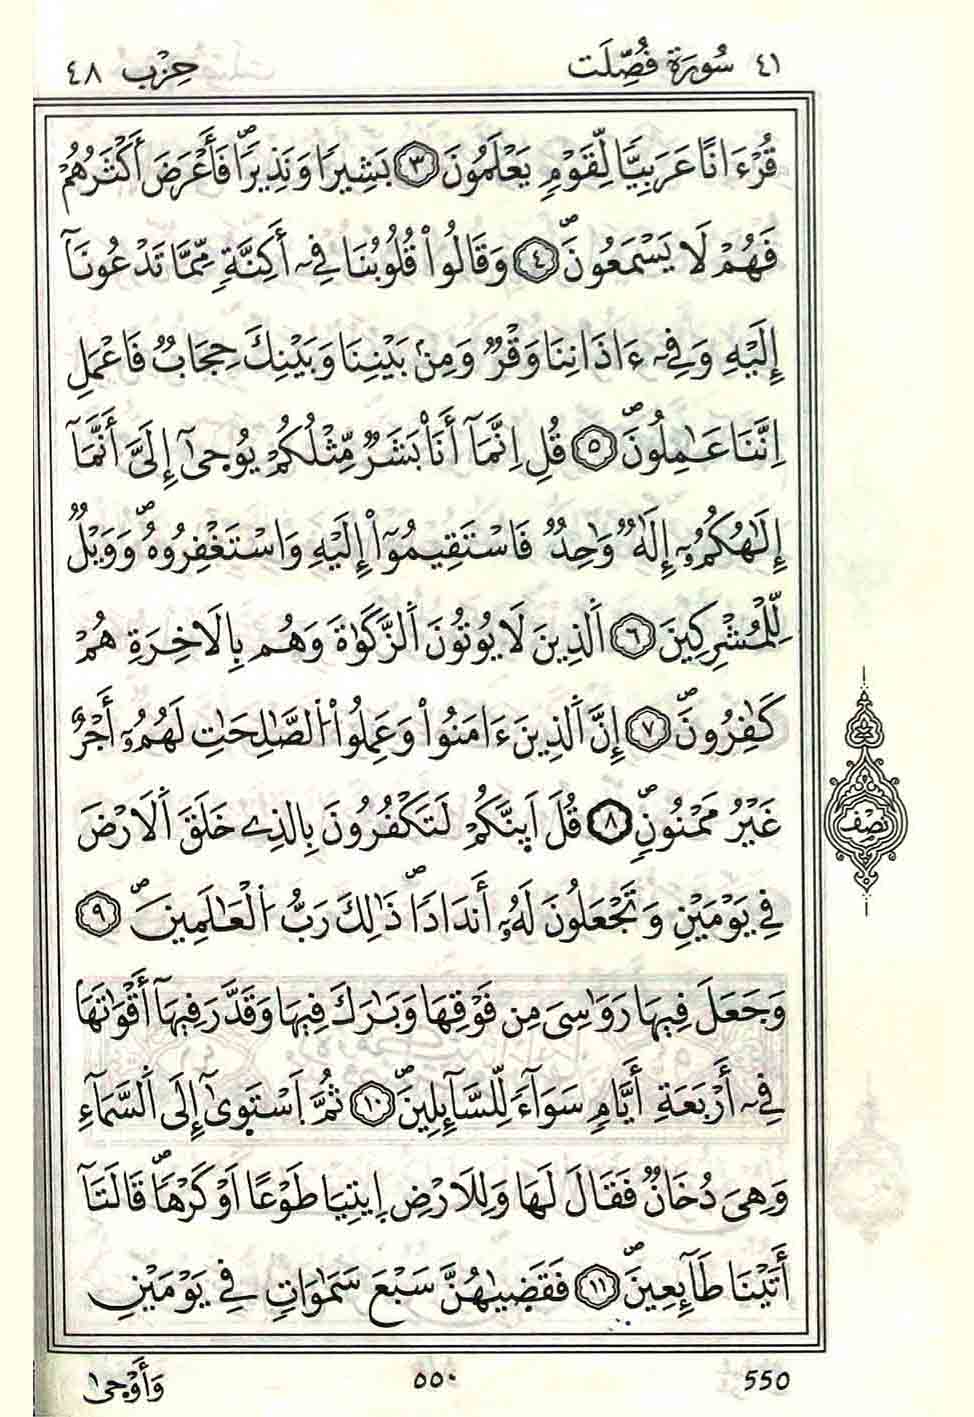 ٤١ سُورَةُ فُصِّلَت حِزْب ٤٨
قُرْءَانًا عَرَبِيًّا لِّقَوْمٍ يَعْلَمُونَ ٣ بَشِيرًا وَنَذِيرًاۖ فَأَعْرَضَ أَكْثَرُهُمْ
فَهُمْ لَا يَسْمَعُونَۖ ٤ وَقَالُواْ قُلُوبُنَا فِےٓ أَكِنَّةٍ مِّمَّا تَدْعُونَآ
إِلَيْهِ وَفِےٓ ءَاذَانِنَا وَقْرٌ وَمِنۢ بَيْنِنَا وَبَيْنِكَ حِجَابٌ فَاعْمَلِ
اِنَّنَا عَٰمِلُونَۖ ٥ قُلِ اِنَّمَآ أَنَا۠ بَشَرٌ مِّثْلُكُمْ يُوحَىٰٓ إِلَيَّ أَنَّمَآ
إِلَٰهُكُمُۥٓ إِلَٰهٌ وَٰحِدٌ فَاسْتَقِيمُوٓاْ إِلَيْهِ وَاسْتَغْفِرُوهُۖ وَوَيْلٌ
لِّلْمُشْرِكِينَ ٦ اَلذِينَ لَا يُوتُونَ اَلزَّكَوٰةَ وَهُم بِالَاخِرَةِ هُمْ
كَٰفِرُونَۖ ٧ إِنَّ اَلذِينَ ءَامَنُواْ وَعَمِلُواْ اُلصَّٰلِحَٰتِ لَهُمُۥٓ أَجْرٌ
غَيْرُ مَمْنُونٍۖ ٨ قُلَ اَٮِٕنَّكُمْ لَتَكْفُرُونَ بِالذِے خَلَقَ اَلَارْضَ
فِي يَوْمَيْنِ وَتَجْعَلُونَ لَهُۥٓ أَندَادًاۖ ذَٰلِكَ رَبُّ اُلْعَٰلَمِينَۖ ٩
وَجَعَلَ فِيهَا رَوَٰسِيَ مِن فَوْقِهَا وَبَٰرَكَ فِيهَا وَقَدَّرَ فِيهَآ أَقْوَٰتَهَا
فِےٓ أَرْبَعَةِ أَيَّامٍ سَوَآءً لِّلسَّآئِلِينَۖ ١٠ ثُمَّ اَسْتَوَىٰٓ إِلَى اَلسَّمَآءِ
وَهِيَ دُخَانٌ فَقَالَ لَهَا وَلِلَارْضِ اِيتِيَا طَوْعًا اَوْ كَرْهًاۖ قَالَتَآ
أَتَيْنَا طَآئِعِينَۖ ١١ فَقَضَيٰهُنَّ سَبْعَ سَمَٰوَاتٍ فِي يَوْمَيْنِ
نِصْف
وَأَوْحَىٰ ٥٥٠ 550